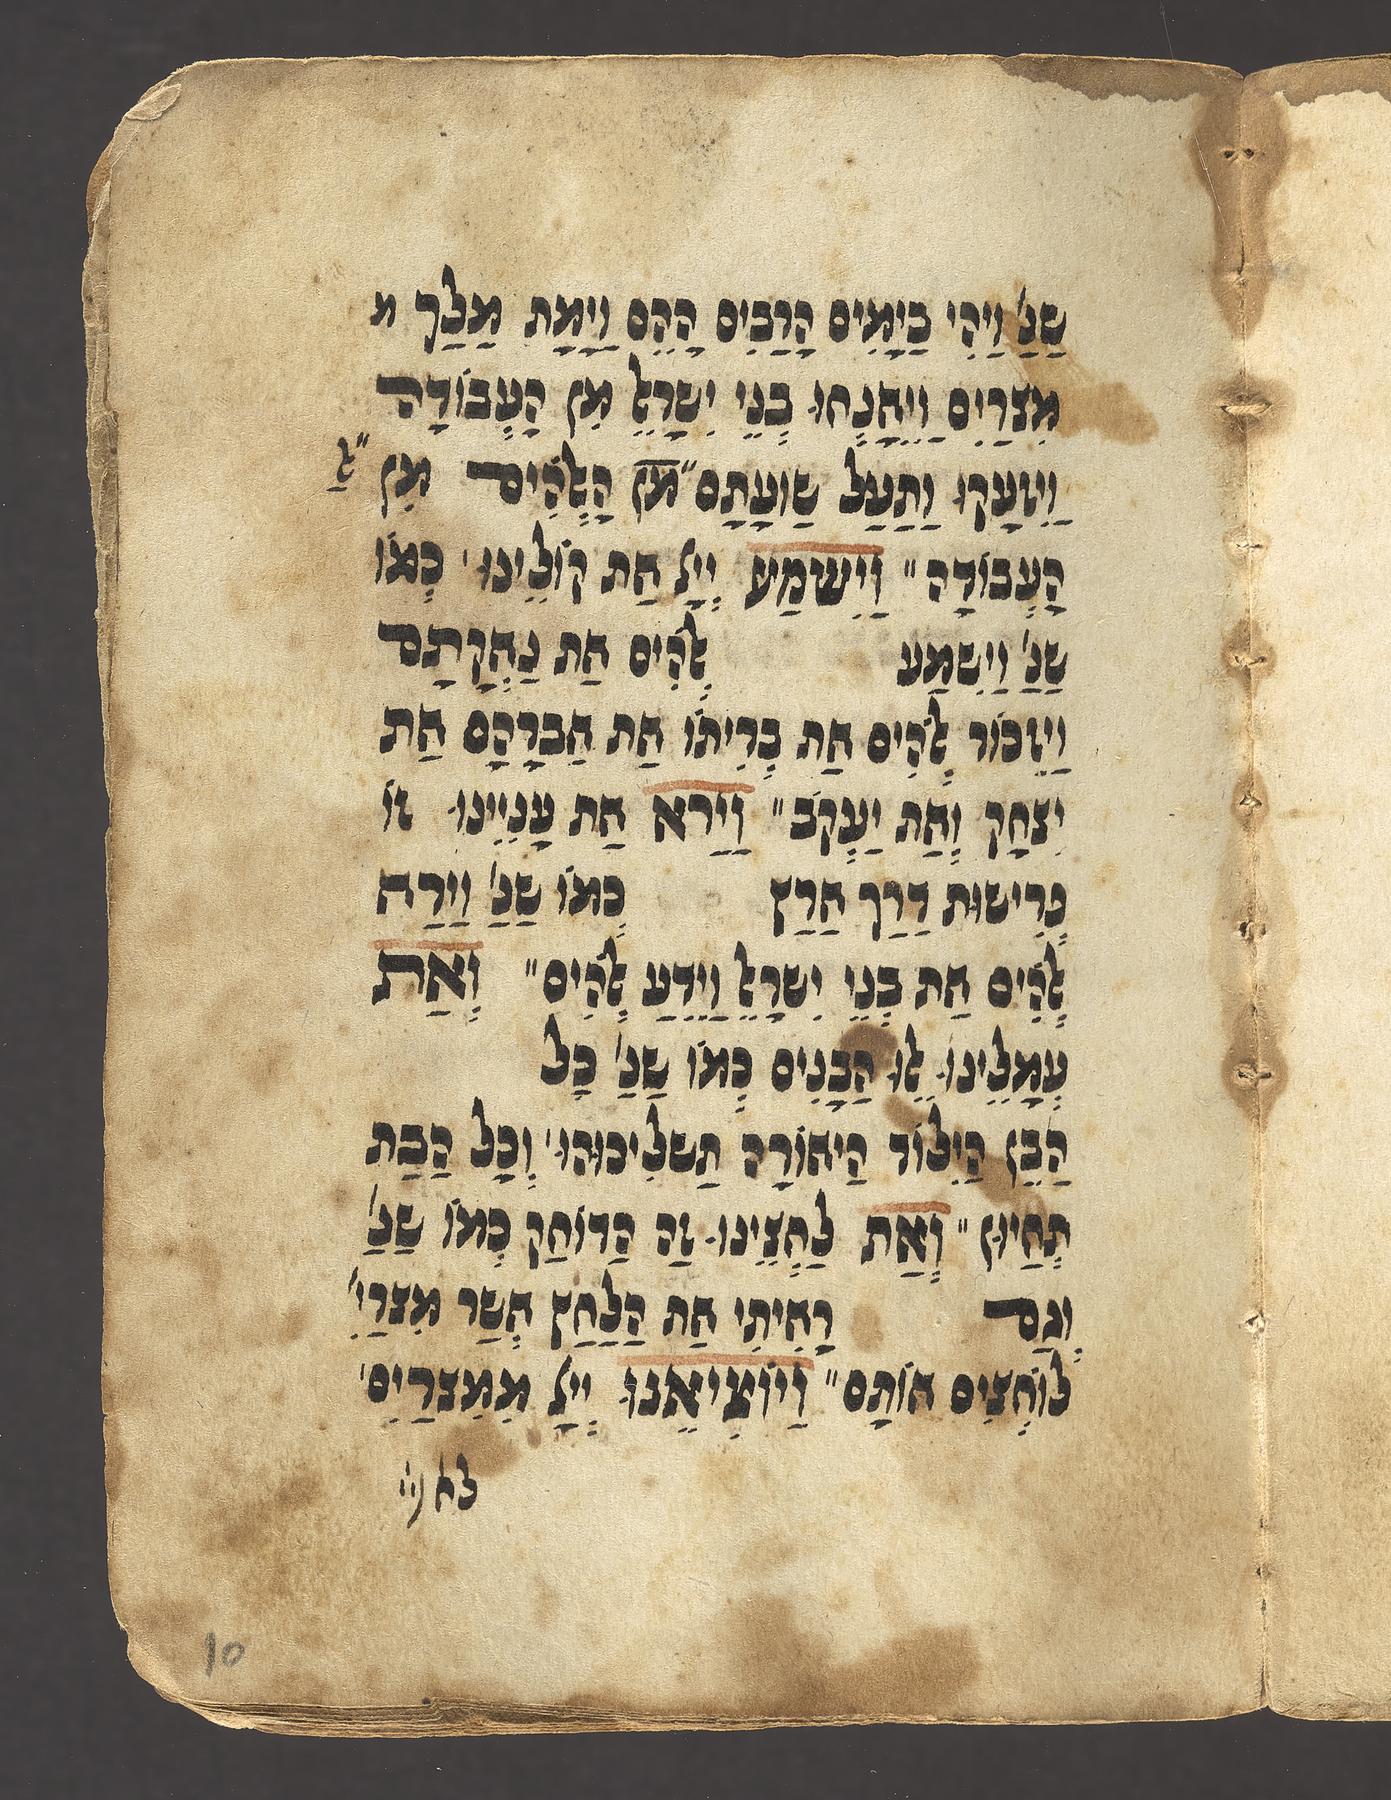 שַׁנַ' וַיְהִי בַיָמִים הָרַבִים הָהֵם וַיָמָת מֶלֶךְ מ
מִצְרַיִם וַיֵאָנְחוּ בְנֵי יִשְרָאֵל מִן הָעֲבוֹדָה
וַיִזְעָקוּ וַתַעַל שַוְעָתָם אֶל הָאֱלֹהִים מִן
הָעֲבוֹדָה" וַיִשְמַע יְיָ אֶת קוֹלֵינוּ' כְמוֹ
שַנַ' וַיִשְמַע אֱלֹהִים אֶת נַאֲקָתָם
וַיִזְכּוֹר אֱלֹהִים אֶת בְרִיתוֹ אֶת אַבְרָהָם אֶת
יִצְחָק וְאֶת יַעֲקֹב" וַיַרְא אֶת עָנְיֵינוּ זוֹ
פְרִישׁוּת דֶרֶךְ אֶרֶץ כְמוֹ שַנַ' וַיַרְא
אֱלֹהִים אֶת בְנֵי יִשְרָאֵל וַיֵדַע אֱלֹהִים" וְאֶת
עֲמָלֵינוּ אֵלוּ הַבָנִים כְמוֹ שַנַ' כָל
הַבֵן הַיִלוֹד הַיְאוֹרָה תַשְלִיכוּהוּ' וְכָל הַבַת
תְחַיוּן" וְאֶת לַחֲצֵינוּ זֶה הַדוֹחַק כְמוֹ שַנַ'
וְגַם רָאִיתִי אֶת הַלַחַץ אֲשֶר מִצְרַיִ'
לוֹחֲצִים אוֹתָם" וַיוֹצִיאֵנוּ יְיָ מִמִצְרַיִם'
לא
10